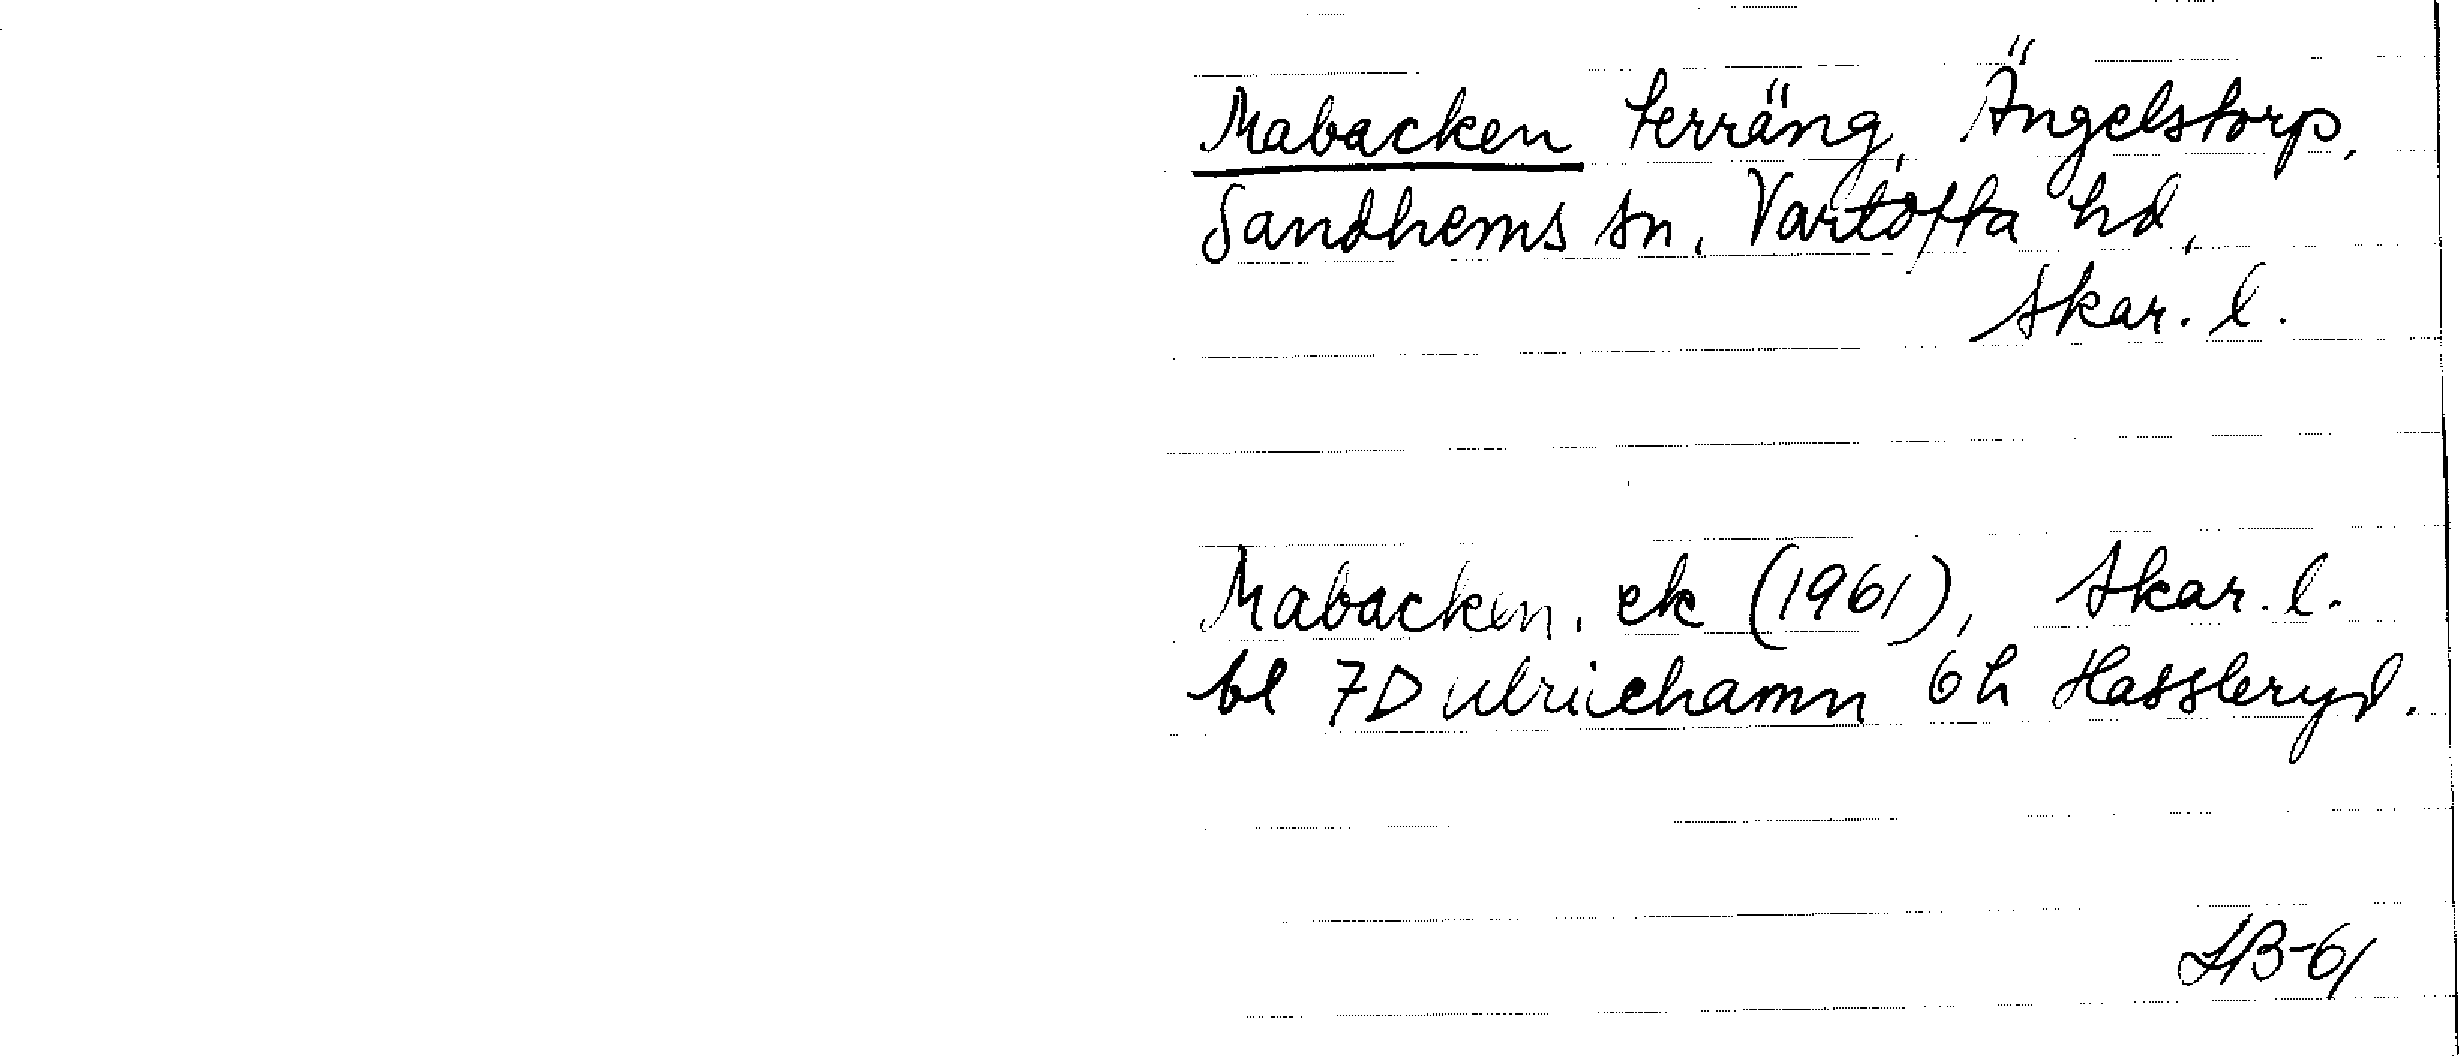 Mabacken terräng, Ängelstorp,
Sandhems sn, Vartofta hd,
Skar. l.
Mabacken, ek (1961), Skar. l.
bl 7D Ulricehamn 6h Hassleryd.
HB-61